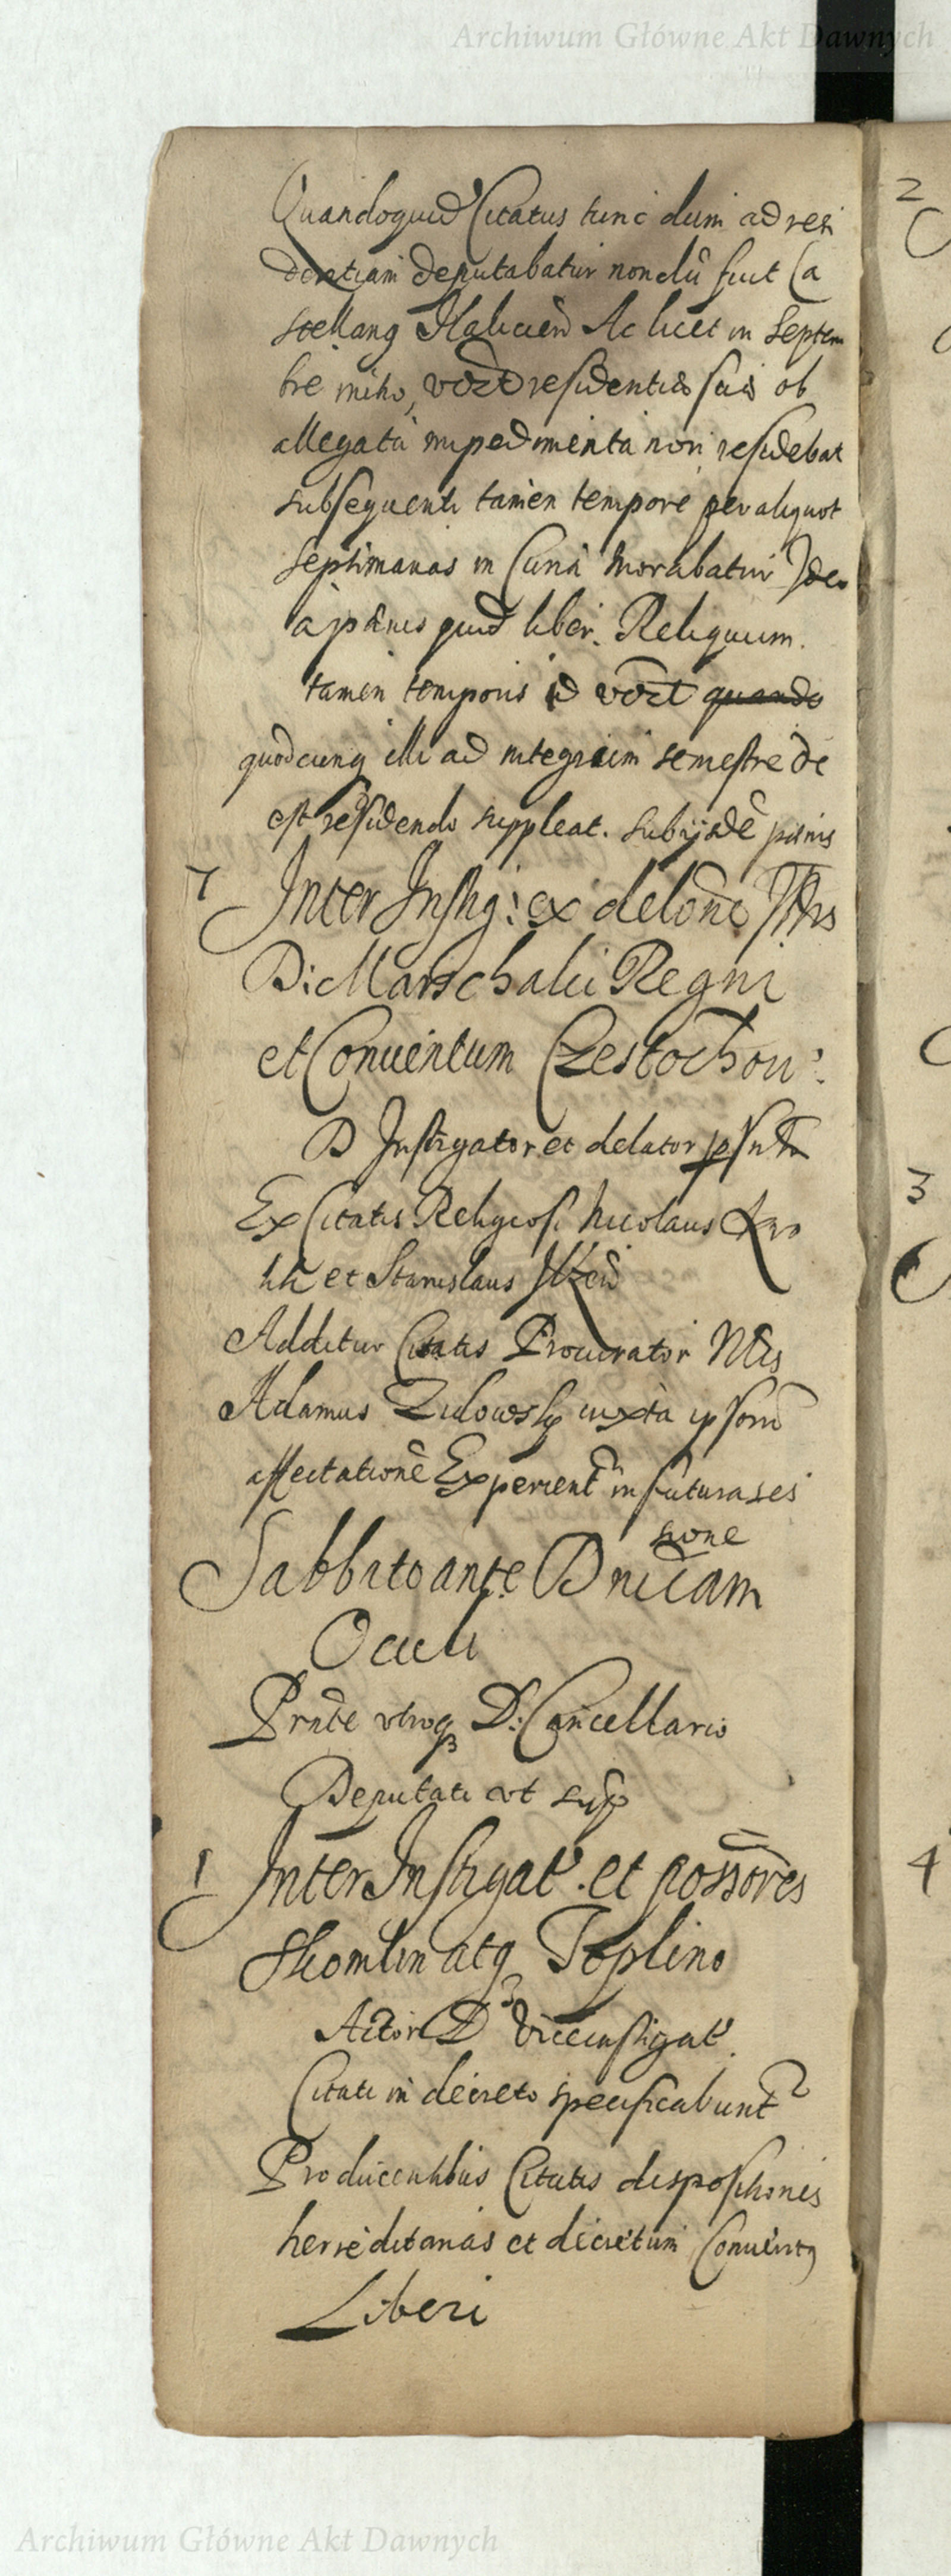 Archiwum Główne Akt Dawnych
Quandoquid Citatus tunc dum ad resi
dentiam deputabatur nondū fuit Ca
stellang Haliciēn Ac licet in Septem
bre residentiis suis ob
allegata impedimenta non residebat
subsequenti tamen tempore per aliquot
septimanas in Curia morabatur Ideo
a pœnis quid liber. Reliquum.
tamen temporis id vdzt quando
quodcunq illi ad integrum semestre de
est residendo suppleat. sub iisdē pœnis
7 Inter Instig: ex delōne
D: Marschalci Regni
et Conuentum Czestochou:
D Instigator et delator
Ex Citatis Religiosi Nicolaus
et Stanislaus
Additur Citatis Procurator
Adamus Zulowsky iuxta ipsorū
affectationē Experient in futura ses
sione
Sabbato ante Dnicam
Oculi
Prnte utroq D: Cancellario
Deputati ut sup
1 Inter Instigat. et possōres
Skomlin atq Toplino
Actor D Viceinstigat.
Citati in decreto specificabunt
Producentibus Citatis dispositiones
herreditarias et decretum Conuent
Liberi
2
3
4
Archiwum Główne Akt Dawnych